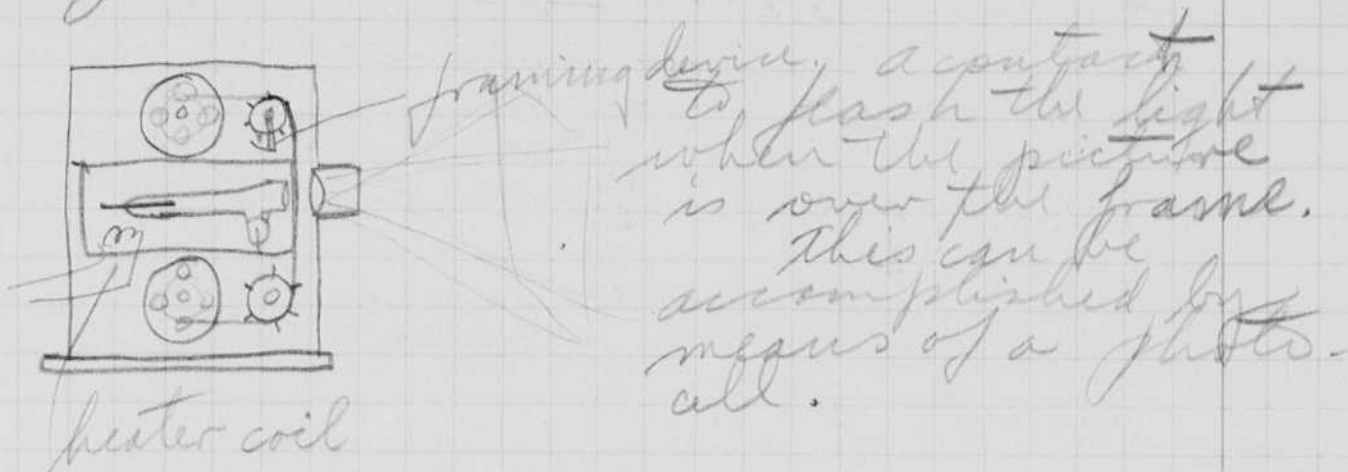 framing device. a contact
to flash the light
when the picture
is over the frame.
This can be
accomplished by
means of a photo-
cell.
heater coil